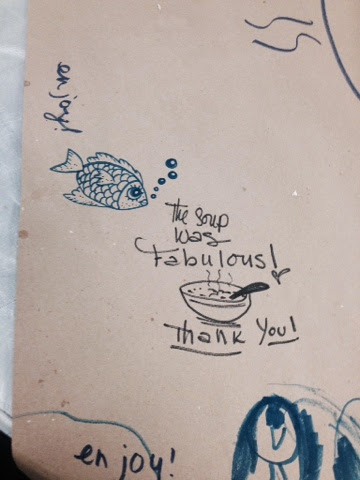 enjoy!
The Soup
was
Fabulous!
Thank You!
enjoy!